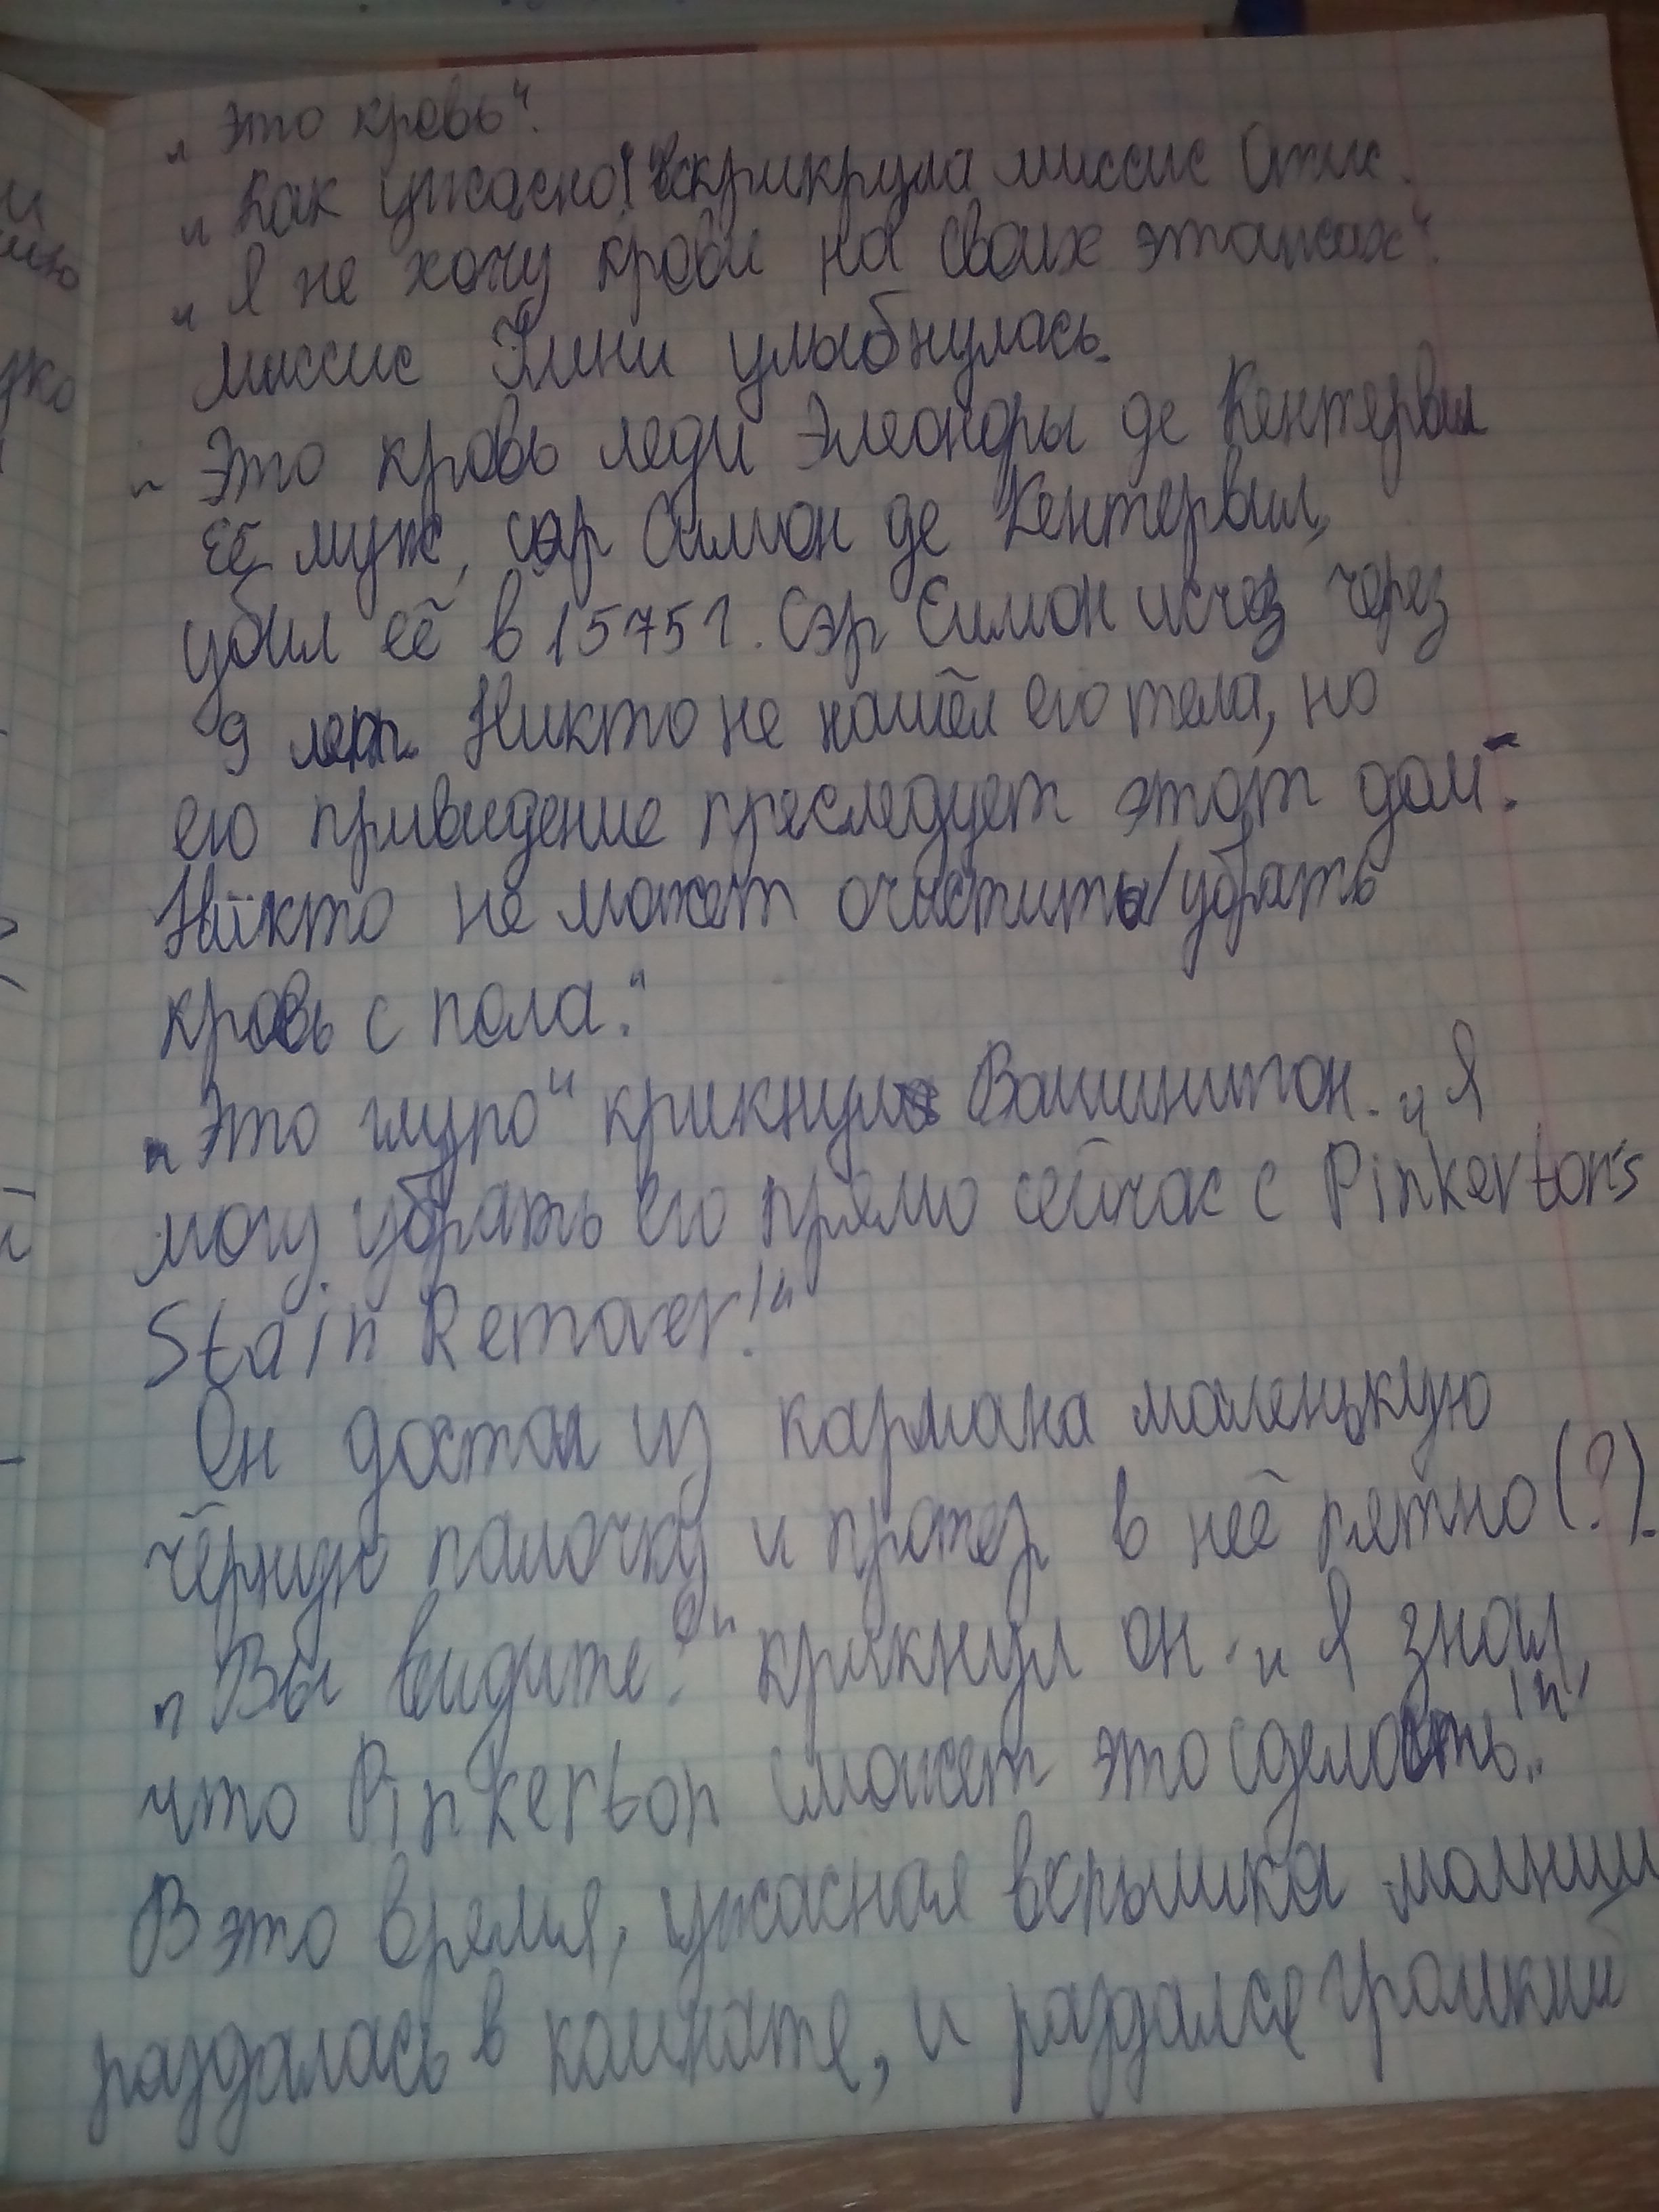 „Это кровь".
„Как ужасно!" вскрикрула миссис Отис.
„Я не хочу крови на своих этажах".
Миссис Юмни улыбнулась.
„Это кровь леди Элеоноры де Кентервил
Её муж, сэр Симон де Кентервил,
убил её в 1575 г. Сэр Симон исчез через
9 лет. Никто не нашёл его тела, но
его привидение преследует этот дом".
Никто не может очистить/убрать
кровь с пола."
„Это глупо" крикнул Вашингтон. „Я
могу убрать его прямо сейчас с Pinkerton's
Stain Remover!"
Он достал из кармана маленькую
чёрную палочку и протёр в неё пятно(?).
„Вы видите?" крикнул он. „Я знал,
что Pinkerton сможет это сделать!"
В это время, ужасная вспышка молнии
раздалась в комнате, и раздался громкий